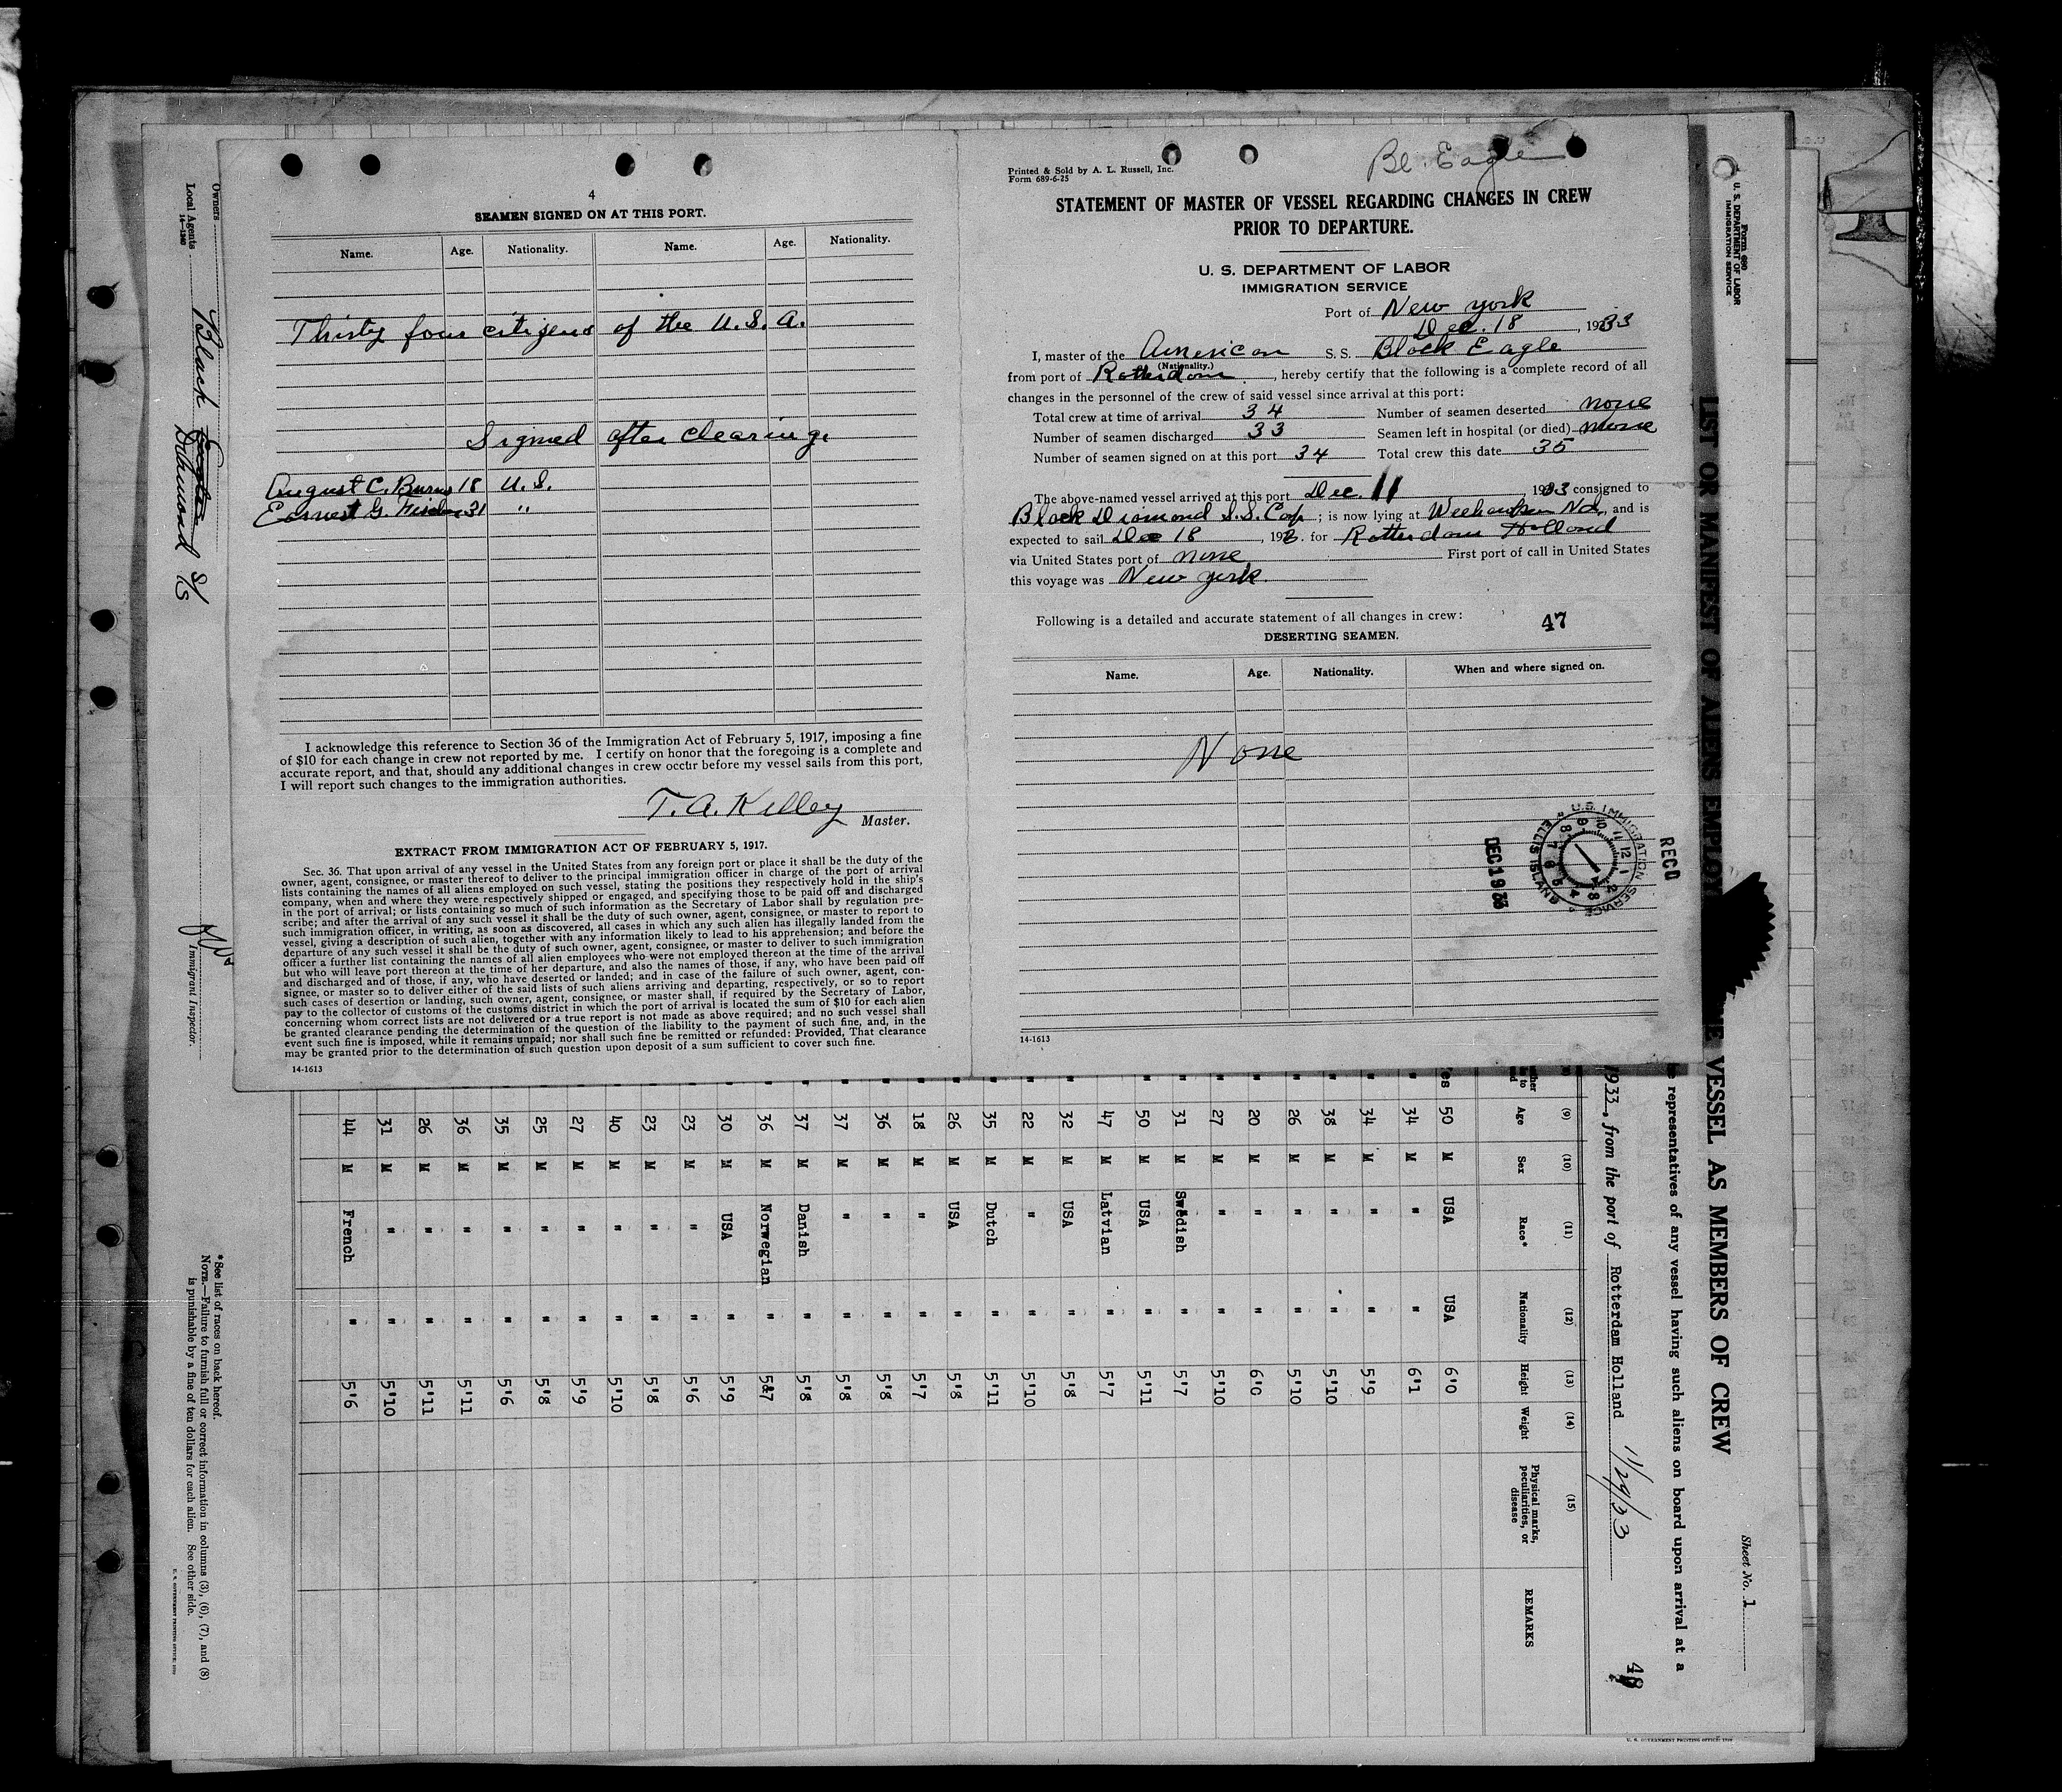 4
SEAMEN SIGNED ON AT THIS PORT.
Name. Age. Nationality. Name. Age. Nationality.
Thirty four citizens of the U.S.A.
Signed after clearing.
August C. Burns 18 U.S.
Earnest G. 31 "
I acknowledge this reference to Section 36 of the Immigration Act of February 5, 1917, imposing a fine
of $10 for each change in crew not reported by me. I certify on honor that the foregoing is a complete and
accurate report, and that, should any additional changes in crew occur before my vessel sails from this port,
I will report such changes to the immigration authorities.
T. A. Kelley
Master.
EXTRACT FROM IMMIGRATION ACT OF FEBRUARY 5, 1917.
Sec. 36. That upon arrival of any vessel in the United States from any foreign port or place it shall be the duty of the
owner, agent, consignee, or master thereof to deliver to the principal immigration officer in charge of the port of arrival
lists containing the names of all aliens employed on such vessel, stating the positions they respectively hold in the ship's
company, when and where they were respectively shipped or engaged, and specifying those to be paid off and discharged
in the port of arrival; or lists containing so much of such information as the Secretary of Labor shall by regulation pre-
scribe; and after the arrival of any such vessel it shall be the duty of such owner, agent, consignee, or master to report to
such immigration officer, in writing, as soon as discovered, all cases in which any such alien has illegally landed from the
vessel, giving a description of such alien, together with any information likely to lead to his apprehension; and before the
departure of any such vessel it shall be the duty of such owner, agent, consignee, or master to deliver to such immigration
officer a further list containing the names of all alien employees who were not employed thereon at the time of the arrival
but who will leave port thereon at the time of her departure, and also the names of those, if any, who have been paid off
and discharged and of those, if any, who have deserted or landed; and in case of the failure of such owner, agent, con-
signee, or master so to deliver either of the said lists of such aliens arriving and departing, respectively, or so to report
such cases of desertion or landing, such owner, agent, consignee, or master shall, if required by the Secretary of Labor,
pay to the collector of customs of the customs district in which the port of arrival is located the sum of $10 for each alien
concerning whom correct lists are not delivered or a true report is not made as above required; and no such vessel shall
be granted clearance pending the determination of the question of the liability to the payment of such fine, and, in the
event such fine is imposed, while it remains unpaid; nor shall such fine be remitted or refunded: Provided, That clearance
may be granted prior to the determination of such question upon deposit of a sum sufficient to cover such fine.
14-1613
Bl. Eagle
Printed & Sold by A. L. Russell, Inc.
Form 689-6-25
STATEMENT OF MASTER OF VESSEL REGARDING CHANGES IN CREW
PRIOR TO DEPARTURE.
U. S. DEPARTMENT OF LABOR
IMMIGRATION SERVICE
Port of New York
Dec. 18, 1933
I, master of the American S. S. Black Eagle
(Nationality.)
from port of Rotterdam, hereby certify that the following is a complete record of all
changes in the personnel of the crew of said vessel since arrival at this port:
Total crew at time of arrival 34 Number of seamen deserted none
Number of seamen discharged 33 Seamen left in hospital (or died) none
Number of seamen signed on at this port 34 Total crew this date 35
The above-named vessel arrived at this port Dec. 11 1933 consigned to
Black Diamond S.S. Corp; is now lying at Weehawken NJ., and is
expected to sail Dec 18, 193. for Rotterdam Holland
via United States port of none First port of call in United States
this voyage was New York.
Following is a detailed and accurate statement of all changes in crew:
47
DESERTING SEAMEN.
Name. Age. Nationality. When and where signed on.
None
REC'D
U.S. IMMIGRATION SERVICE ELLIS ISLAND
DEC 19 33
14-1613
Form 680
U. S. DEPARTMENT OF LABOR
IMMIGRATION SERVICE
Sheet No. 1
LIST OR MANIFEST OF ALIENS EMPLOY
HE VESSEL AS MEMBERS OF CREW
representatives of any vessel having such aliens on board upon arrival at a
1933, from the port of Rotterdam Holland 11/29/33
48
(9) (10) (11) (12) (13) (14) (15)
Age Sex Race* Nationality Height Weight Physical marks, peculiarities, or disease REMARKS
Yes 50 M USA USA 6'0
" 34 M " " 6'1
" 34 M " " 5'9
" 38 M " " 5'10
" 26 M " " 5'10
" 20 M " " 6'0
" 27 M " " 5'10
" 31 M Swedish " 5'7
" 50 M USA " 5'11
" 47 M Latvian " 5'7
" 32 M USA " 5'8
" 22 M " " 5'10
" 35 M Dutch " 5'11
" 26 M USA " 5'8
" 18 M " " 5'7
" 36 M " " 5'8
" 37 M " " 5'8
" 37 M Danish " 5'8
" 36 M Norwegian " 5'7
" 30 M USA " 5'9
" 23 M " " 5'6
" 23 M " " 5'8
" 40 M " " 5'10
" 27 M " " 5'9
" 25 M " " 5'8
" 35 M " " 5'6
" 36 M " " 5'11
" 26 M " " 5'11
" 31 M " " 5'10
" 44 M French " 5'6
Owners
Local Agents Black Eagle Diamond S/S
14-1240
Immigrant Inspector.
*See list of races on back hereof.
NOTE.—Failure to furnish full or correct information in columns (3), (6), (7), and (8)
is punishable by a fine of ten dollars for each alien. See other side.
U. S. GOVERNMENT PRINTING OFFICE